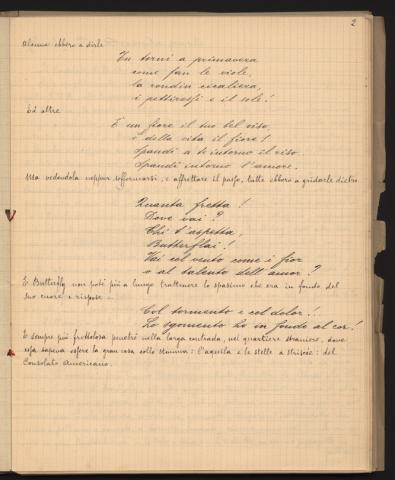 2
Alcune ebbero a dirle
Tu torni a primavera
come fan le viole,
la rondin cicaliera,
i pettirossi e il sole!
Ed altre
È un fiore il tuo bel viso,
è della vita il fiore!
Spandi a te intorno il riso
Spandi intorno l'amore.
Ma vedendola neppur soffermarsi, e affrettare il passo, tutte ebbero a gridarle dietro
Quanta fretta!
Dove vai?
Chi t'aspetta,
Butterflai!
Vai col vento come i fior
o al talento dell'amor?
E Butterfly non poté più a lungo trattenere lo spasimo che era in fondo del
suo cuore e rispose
Col tormento e col dolor!
Lo sgomento ho in fondo al cor!
E sempre più frettolosa penetrò nella larga contrada, nel quartiere straniero, dove
essa sapeva essere la gran casa collo stemma: l'aquila e le stelle a striscie: del
Consolato Americano.